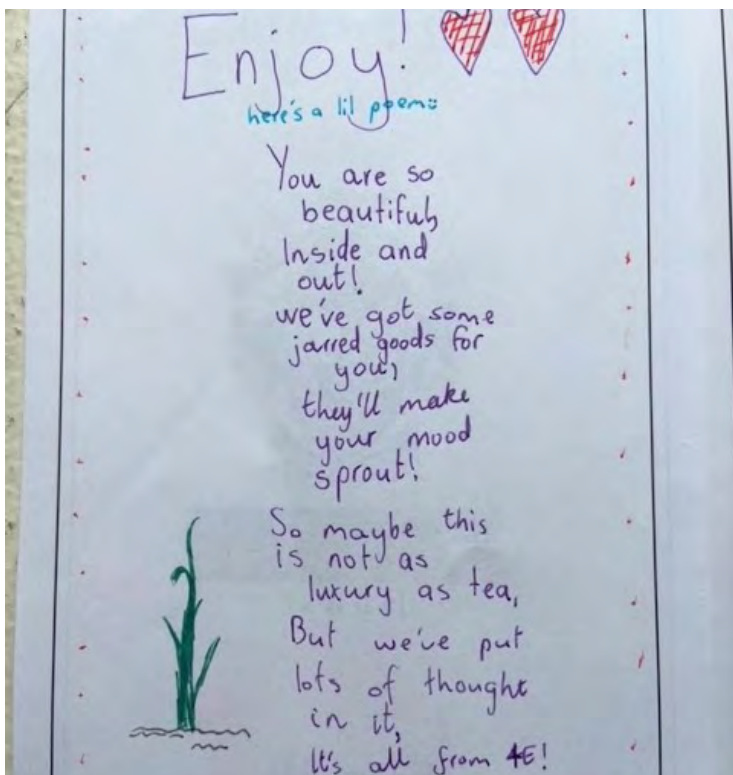 Enjoy!
here's a lil poem:
You are so
beautiful,
Inside and
out!
we've got some
jarred goods for
you,
they'll make
your mood
sprout!
So maybe this
is not as
luxury as tea,
But we've put
lots of thought
in it,
It's all from 4E!